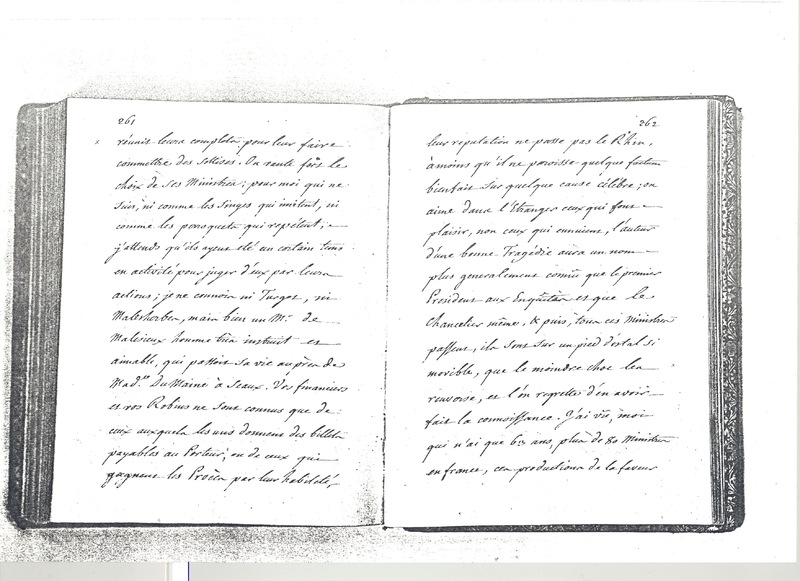 261
x réunit leurs complots pour leur faire
commettre des sottises. On vante fort le
choix de ses Ministres; pour moi qui ne
suis, ni comme les Singes qui imitent, ni
comme les peroquets qui repétent;
j'attends qu'ils ayent eté un certain tems
en activité pour juger d'eux par leurs
actions; je ne connois ni Turgot, ni
Malesherbes, mais bien un Mr. de
Malesieux homme bien instruit et
aimable, qui passoit sa vie auprès de
Made. Du Maine à Sceaux. Vos financiers
et vos Robins ne sont connus que de
ceux auxquels les uns donnent des billets
payables au Porteur, ou de ceux qui
gagnent les Procès par leur habileté,
262
leur réputation ne passe pas le Rhin,
àmoins qu'il ne paroisse quelque factum
bienfait sur quelque cause célébre; on
aime dans l'Etranger ceux qui font
plaisir, non ceux qui ennuient, l'auteur
d'une bonne Tragédie aura un nom
plus generalement connu que le premier
President aux Enquêtes et que le
Chancelier même, & puis, tous ces Ministres
passent, ils sont sur un pied d'estal si
movible, que le moindre choc les
renverse, et l'on regrette d'en avoir
fait la connoissance. J'ai vû, moi
qui n'ai que 63 ans, plus de 80 Ministres
en france, ces productions de la faveur